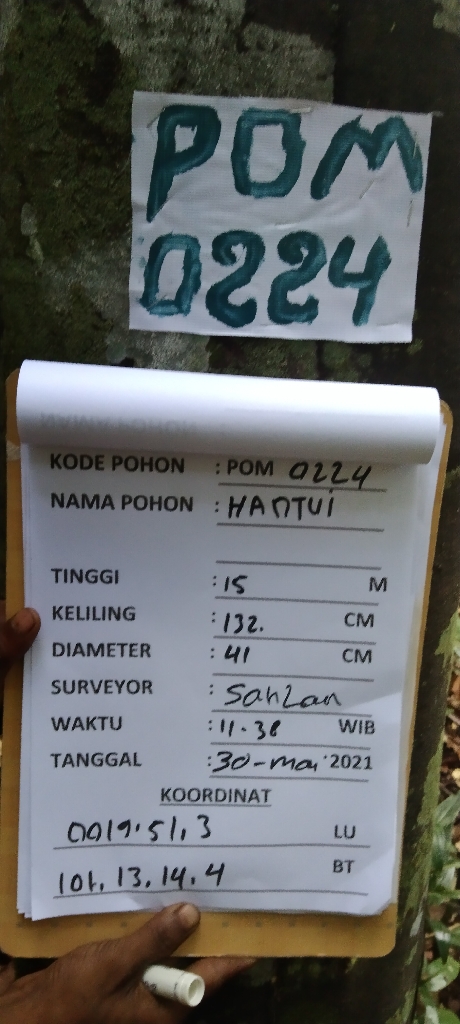 POM
0224
KODE POHON : POM 0224
NAMA POHON : HANTUi
TINGGI : 15 M
KELILING : 132. CM
DIAMETER : 41 CM
SURVEYOR : Sahlan
WAKTU : 11.38 WIB
TANGGAL : 30-mai 2021
KOORDINAT
0019.51.3 LU
101.13.14.4 BT